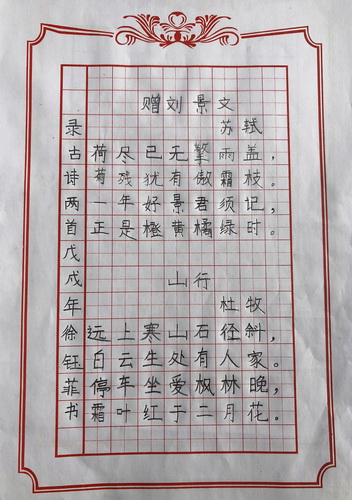 赠刘景文
苏轼
荷尽已无擎雨盖，
菊残犹有傲霜枝。
一年好景君须记，
正是橙黄橘绿时。
山行
杜牧
远上寒山石径斜，
白云生处有人家。
停车坐爱枫林晚，
霜叶红于二月花。
录古诗两首戊戌年徐钰菲书